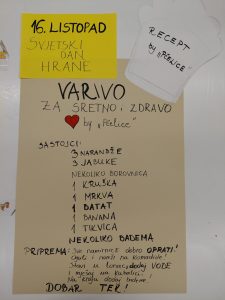 16. LISTOPAD
SVJETSKI
DAN
HRANE
RECEPT
by "PČELICE"
VARIVO
ZA SRETNO i ZDRAVO
by „Pčelice"
SASTOJCI:
3 NARANDŽE
3 JABUKE
NEKOLIKO BOROVNICA
1 KRUŠKA
1 MRKVA
1 BATAT
1 BANANA
1 TIKVICA
NEKOLIKO BADEMA
PRIPREMA: Sve namirnice dobro OPRATI!
Oguli i nareži na komadiće!
Stavi u lonac, dodaj VODE
i miješaj
Na kraju dodaj bademe!
DOBAR TEK!